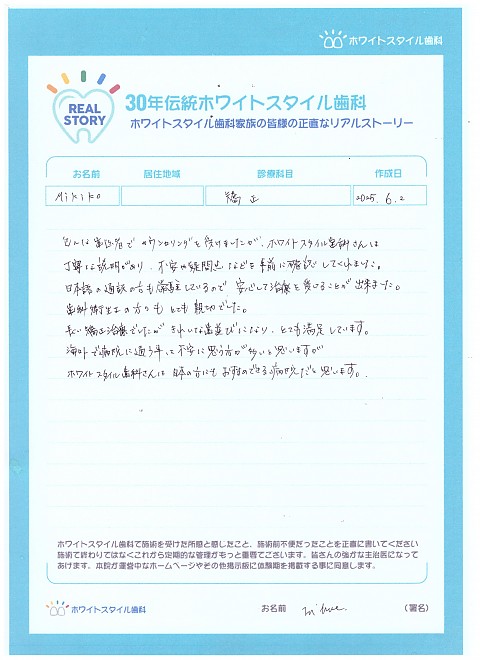 ホワイトスタイル歯科
REAL
STORY
30年伝統ホワイトスタイル歯科
ホワイトスタイル歯科家族の皆様の正直なリアルストーリー
お名前 居住地域 診療科目 作成日
Mikiko 矯正 2025. 6. 2
でカウンセリングを受けましたが、ホワイトスタイル歯科さんは
丁寧な説明があり、不安や疑問点などを事前に確認してくれました。
日本語の通訳の方も常駐しているので 安心して治療を受けることが出来ました。
歯科衛生士の方々も とても親切でした。
長い矯正治療でしたが きれいな歯並びになり、とても満足しています。
海外で病院に通う事に不安に思う方が多いと思いますが
ホワイトスタイル歯科さんは 日本の方にもおすすめできる病院だと思います。
ホワイトスタイル歯科で施術を受けた所感と感じたこと、施術前不便だったことを正直に書いてください
施術で終わりではなくこれから定期的な管理がもっと重専でございます。皆さんの強がな主治医になって
あげます。本院が運営中なホームページやその他掲示板に体験期を掲載する事に同意します。
ホワイトスタイル歯科 お名前 (署名)